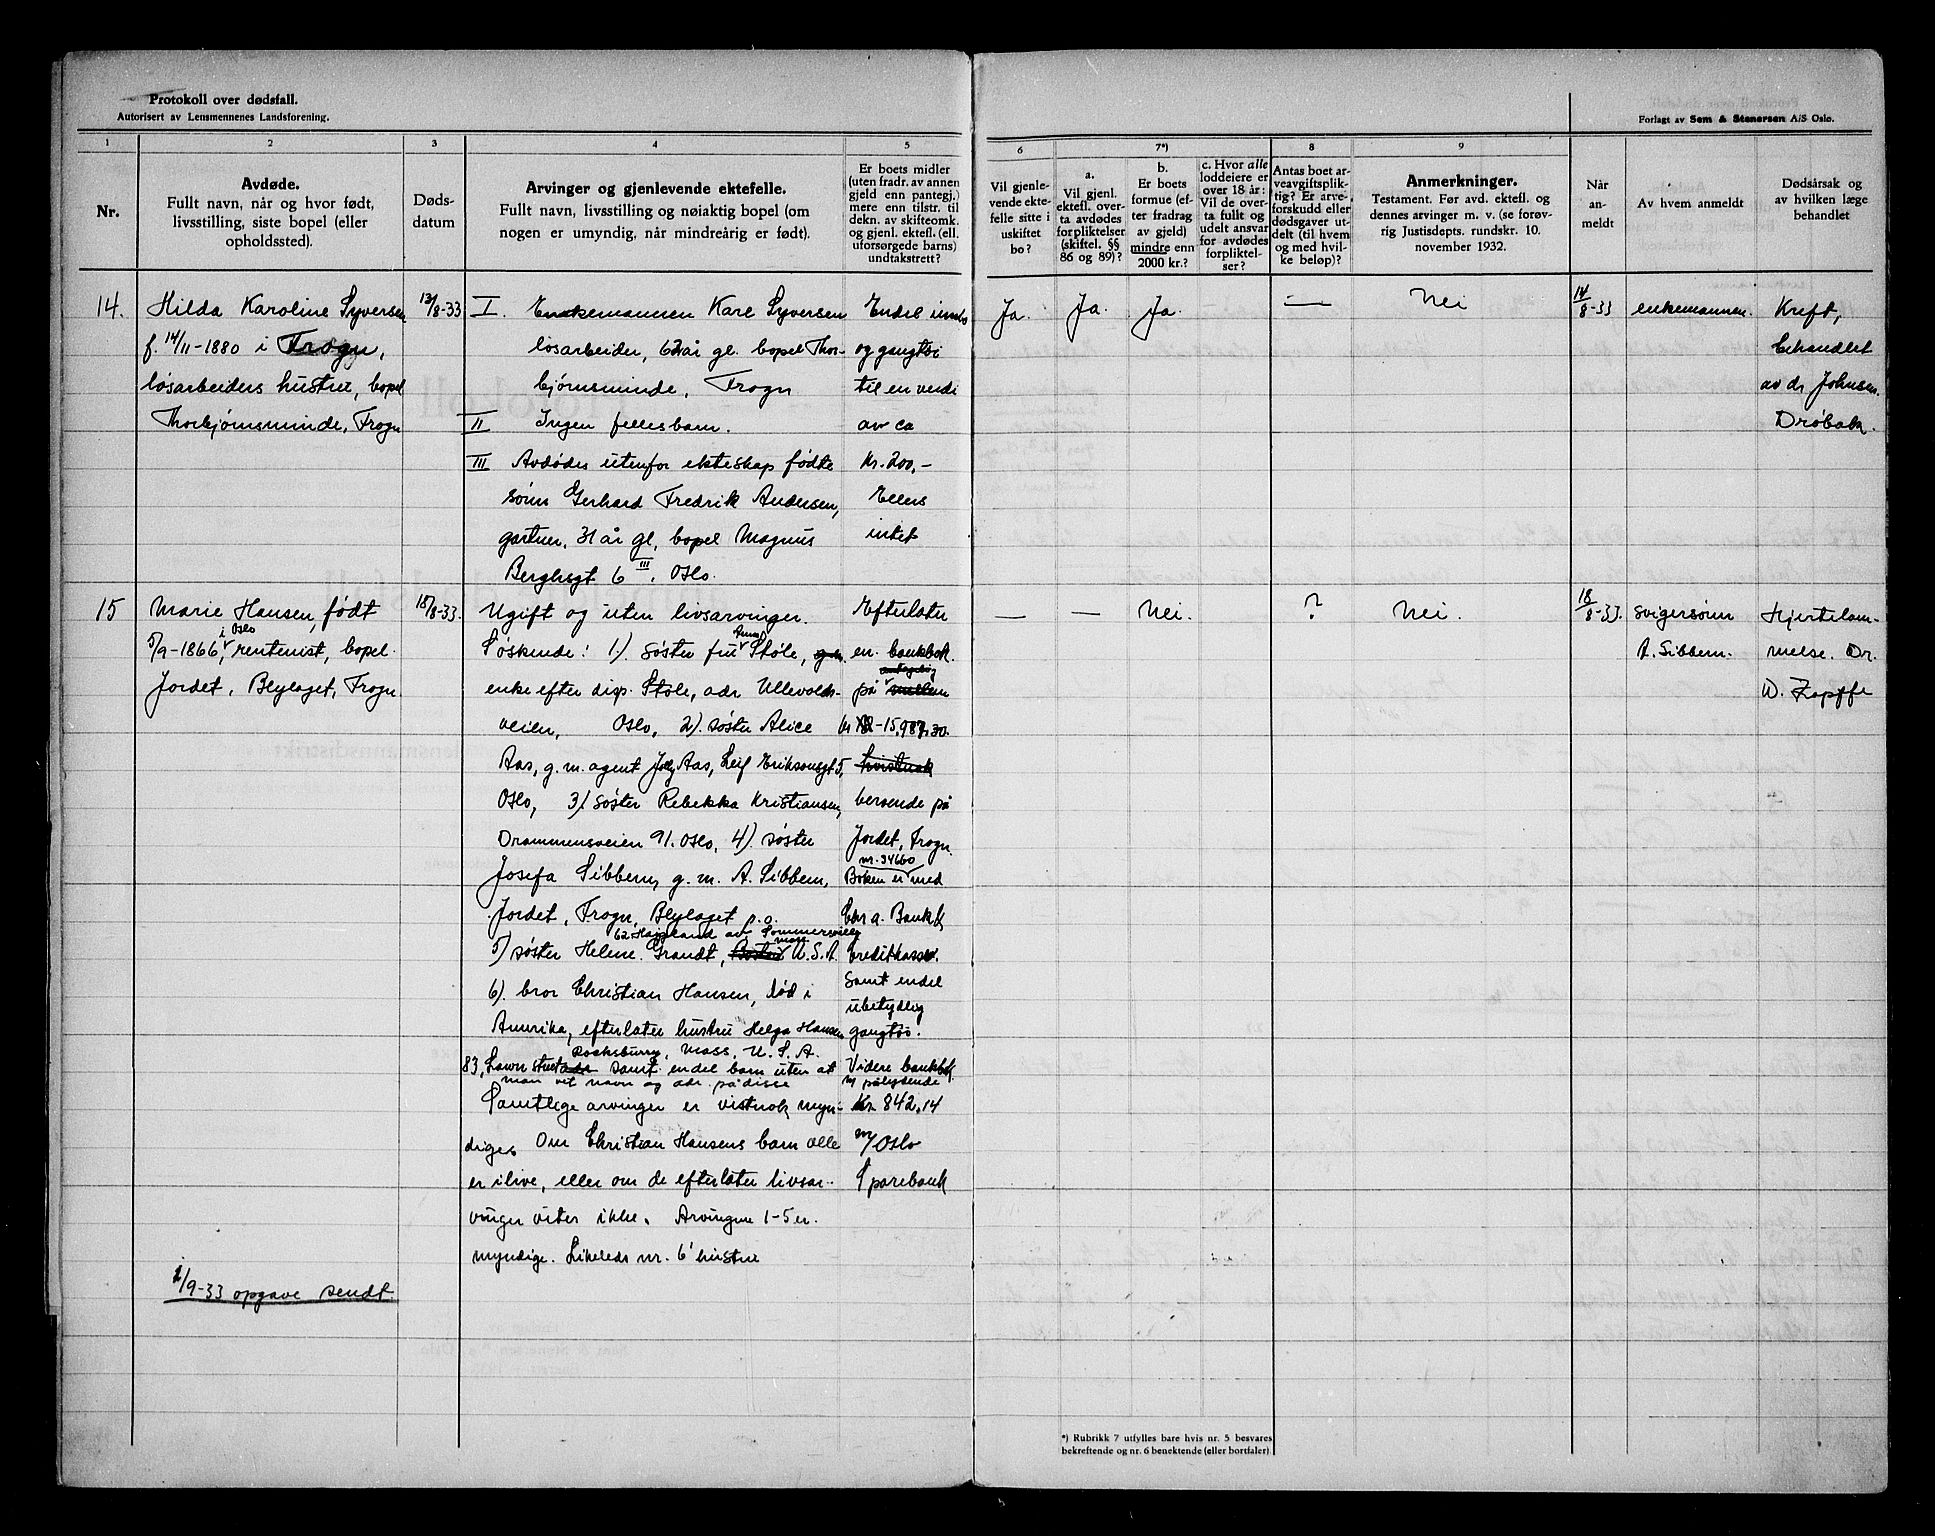 Protokoll over dødsfall.
Autorisert av Lensmennenes Landsforening.
Forlagt av Sem & Stenersen A/S Oslo.
1
2
3
4
5
6
7*)
8
9
Nr.
Avdøde.
Fullt navn, når og hvor født,
livsstilling, siste bopel (eller
opholdssted).
Døds-
datum
Arvinger og gjenlevende ektefelle.
Fullt navn, livsstilling og nøiaktig bopel (om
nogen er umyndig, når mindreårig er født).
Er boets midler
(uten fradr. av annen
gjeld enn pantegj.)
mere enn tilstr. til
dekn. av skifteomk.
og gjenl. ektefl. (ell.
uforsørgede barns)
undtakstrett?
Vil gjenle-
vende ekte-
felle sitte i
uskiftet
bo?
a.
Vil gjenl.
ektefl. over-
ta avdødes
forpliktelser
(skiftel. §§
86 og 89)?
b.
Er boets
formue (ef-
ter fradrag
av gjeld)
mindre enn
2000 kr.?
c. Hvor alle
loddeiere er
over 18 år:
Vil de over-
ta fullt og
udelt ansvar
for avdødes
forpliktel-
ser?
Antas boet ar-
veavgiftsplik-
tig? Er arve-
forskudd eller
dødsgaver ut-
delt (til hvem
og med hvil-
ke beløp)?
Anmerkninger.
Testament. Før avd. ektefl. og
dennes arvinger m. v. (se forøv-
rig Justisdepts. rundskr. 10.
november 1932.
Når
an-
meldt
Av hvem anmeldt
Dødsårsak og
av hvilken læge
behandlet
14.
Hilda Karoline Syversen
f. 14/11-1880 i Frogn,
løsarbeiders hustru, bopel
Thorbjørnsminde, Frogn
13/8-33
I. Enkemannen Karl Syversen
løsarbeider, 62 år gl. bopel Thor-
bjørnsminde, Frogn
II Ingen fellesbarn.
III Avdødes utenfor ekteskap fødte
sønn Gerhard Fredrik Andersen,
gartner, 31 år gl, bopel Magnus
Berghsgt 6 III. Oslo.
Endel innbo
og gangtøi
til en verdi
av ca
Kr. 200,-
Ellers
intet
Ja.
Ja.
Ja.
—
Nei
14/8-33
enkemannen.
Kreft,
behandlet
av dr Johnsen.
Drøbak.
15
Marie Hansen, født
5/9-1866, i Oslo rentenist, bopel.
Jordet, Blylaget, Frogn
18/8-33.
Ugift og uten livsarvinger.
Søskende: 1). søster fru Støle,
enke efter disp. Støle, adr Ullevolds-
veien, Oslo, 2). søster Alice
Aas, g. m. agent Aas, Leif Eriksonsgt 5,
Oslo, 3). søster Rebekka Kristiansen,
Drammensveien 91. Oslo, 4). søster
Josefa Sibbern, g. m. A. Sibbern,
Jordet, Frogn, Blylaget p.o.
62 av
5) søster Helene Grandt, Mass U.S.A.
6). bror Christian Hansen, død i
Amerika, efterlater hustru Helga Hansen
Rocksburry, Mass. U. S. A.
83, Lawn street samt endel barn uten at
man vet navn og adr. på disse
Samtlige arvinger er vistnok myn-
dige. Om Christian Hansens barn alle
er ilive, eller om de efterlater livsar-
vinger vites ikke. Arvingene 1-5 er
myndige. Likeleds nr. 6' hustru
Efterlater
en bankbok
på antagelig
kr -15.987,30.
beroende på
Jordet, Frogn.
nr. 34660
Boken er med
Chr a. Bank &
Creditkasse.
Samt endel
ubetydelig
gangtøi.
Videre bankbok
pålydende
Kr 842.14
m/ Oslo
Sparebank
—
—
Nei.
?
Nei.
18/8-33.
svigersønn
A. Sibbern.
Hjertelam-
melse. Dr.
W. Zapffe
1/9-33 opgave sendt.
*) Rubrikk 7 utfylles bare hvis nr. 5 besvares
bekreftende og nr. 6 benektende (eller bortfaler)